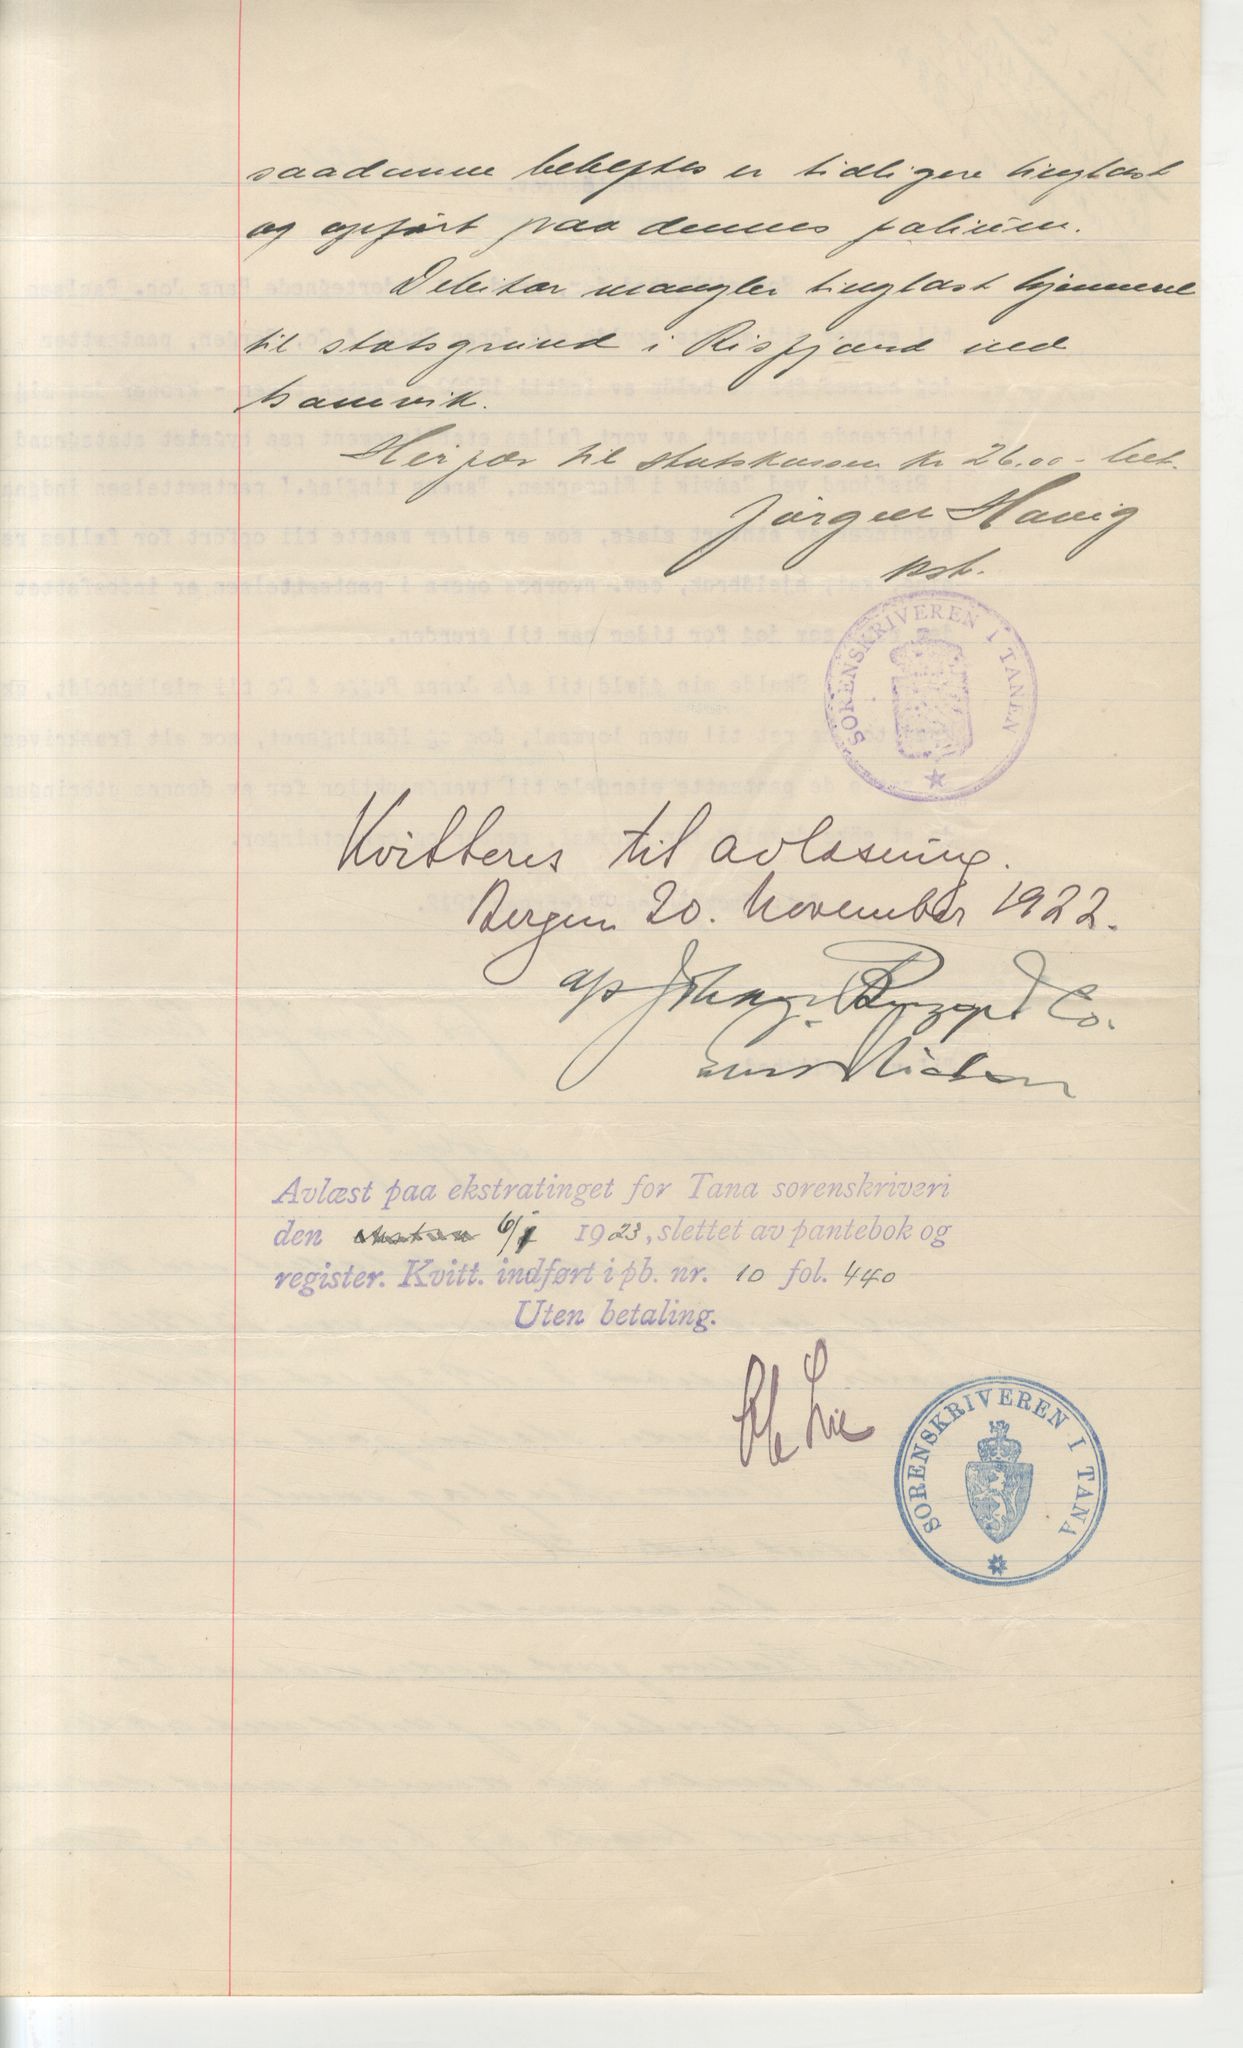 saadanne beheftes er tidligere tinglæst
og opført paa dennes folium.
Debitor mangler tinglæst hjemmel
til statsgrund i Risfjord ved
Hamvik.
Herfor til statskassen kr 26.00 - bet.
Jørgen Havig
kst.
SORENSKRIVEREN I TANEN
Kvitteres til avlæsning.
Bergen 20. November 1922.
& Co.
Avlæst paa ekstratinget for Tana sorenskriveri
den 6/1 1923, slettet av pantebok og
register. Kvitt. indført i pb. nr. 10 fol. 440
Uten betaling.
Lie
SORENSKRIVEREN I TANA